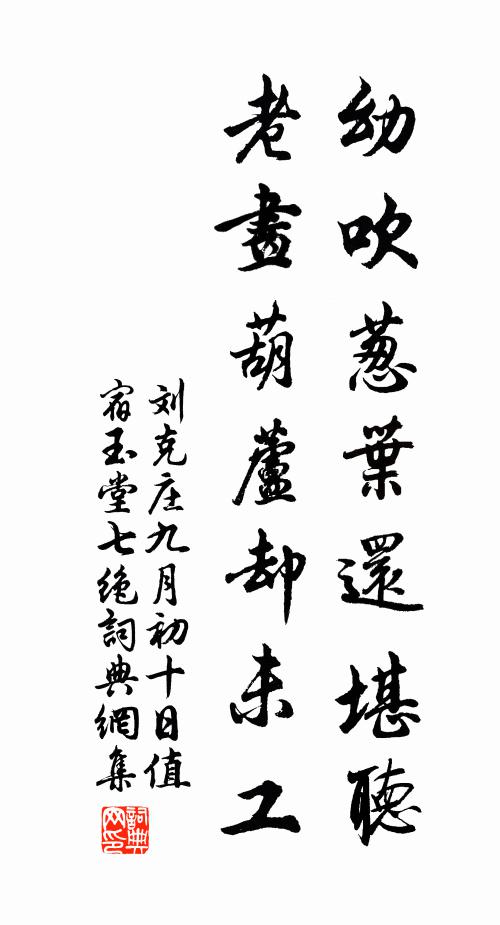 幼吹葱葉還堪聽
老畫葫蘆却未工
刘克庄九月初十日值
宿玉堂七绝詞典網集
詞典
网印